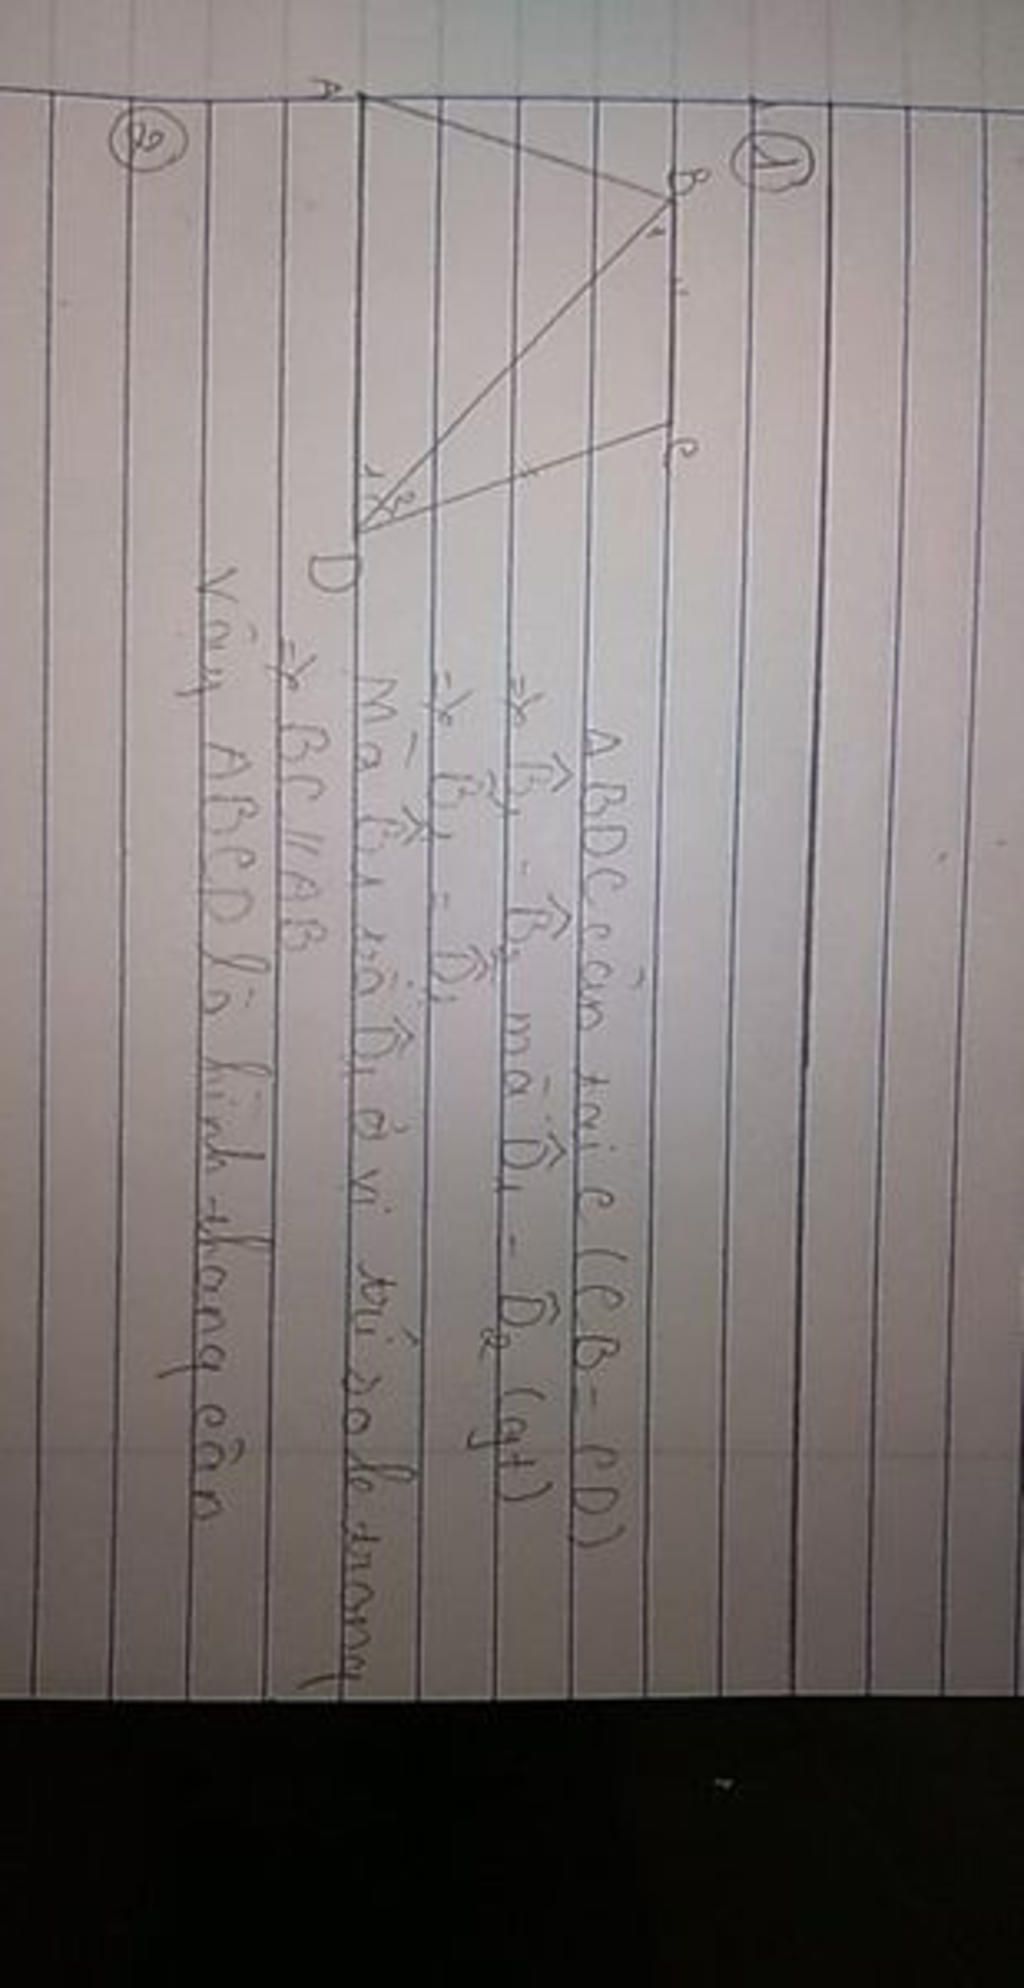 ①
B
C
1
2
1
A
D
ΔBDC cân tại C (CB = CD)
=> B̂₁ = B̂₂ mà D̂₁ = D̂₂ (gt)
=> B̂₁ = D̂₁
Mà B̂₁ và D̂₁ ở vị trí so le trong
=> BC // AB
Vậy ABCD là hình thang cân
②